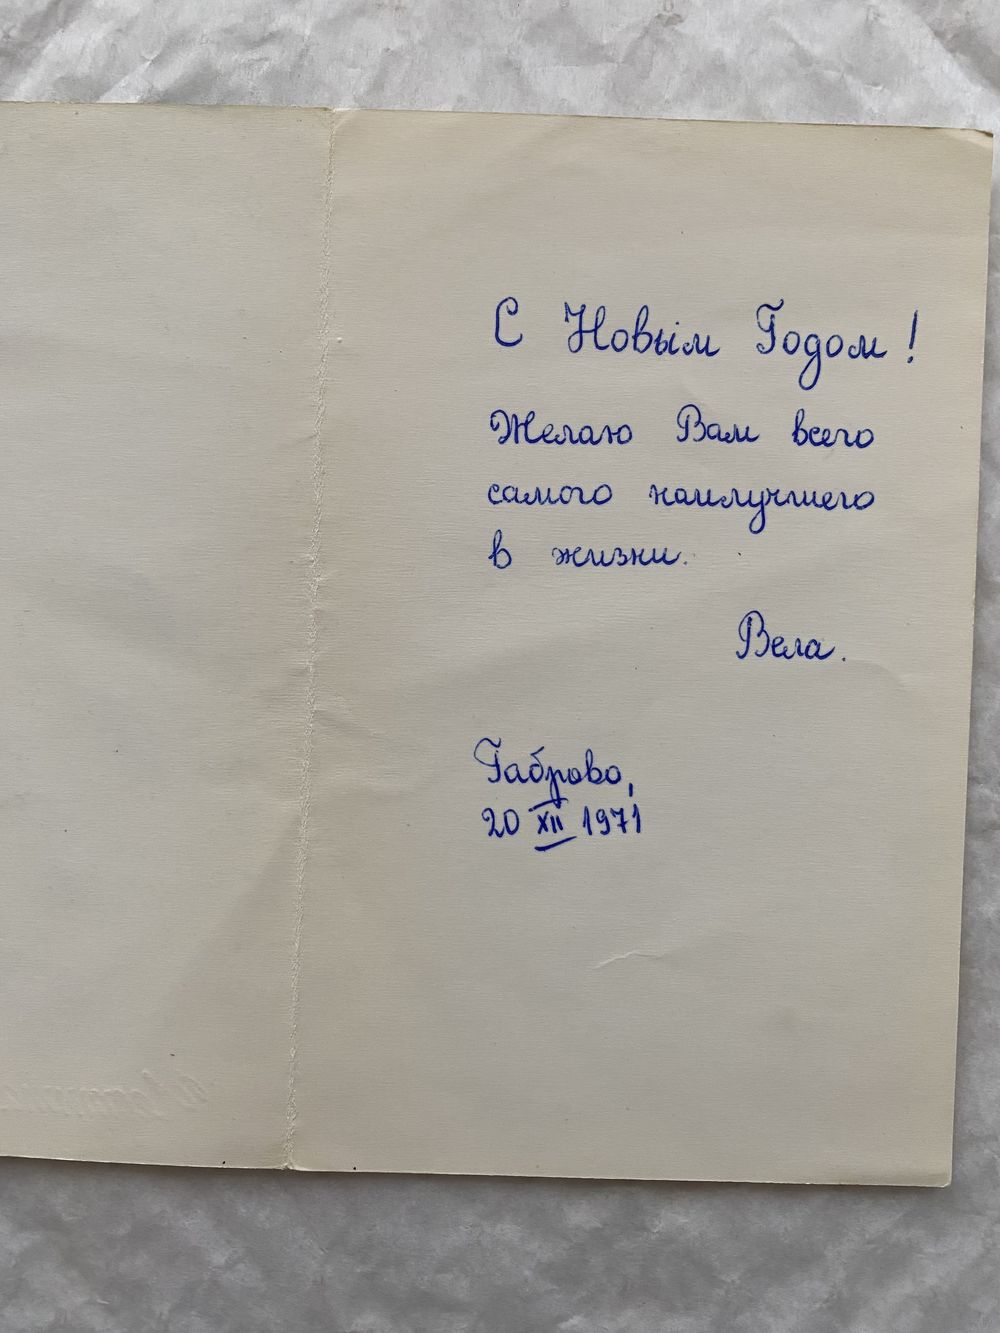 С Новым Годом!
Желаю Вам всего
самого наилучшего
в жизни.
Вела.
Габрово,
20 XII 1971